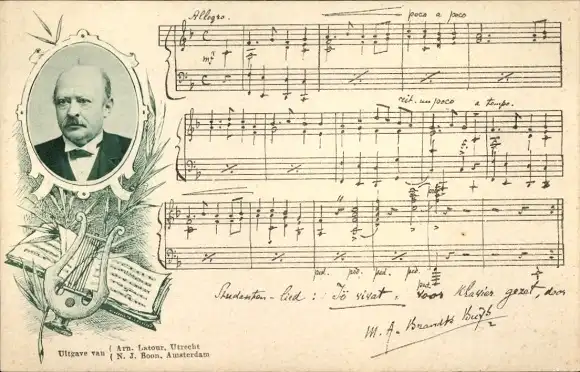 Allegro.
poco a poco
rit. un poco
a tempo.
ped. ped. ped. ped.
Studenten-lied: "Jö vivat", voor Klavier gezet, door
M. A. Brandts Buijs
Uitgave van { Arn. Latour, Utrecht
{ N. J. Boon, Amsterdam